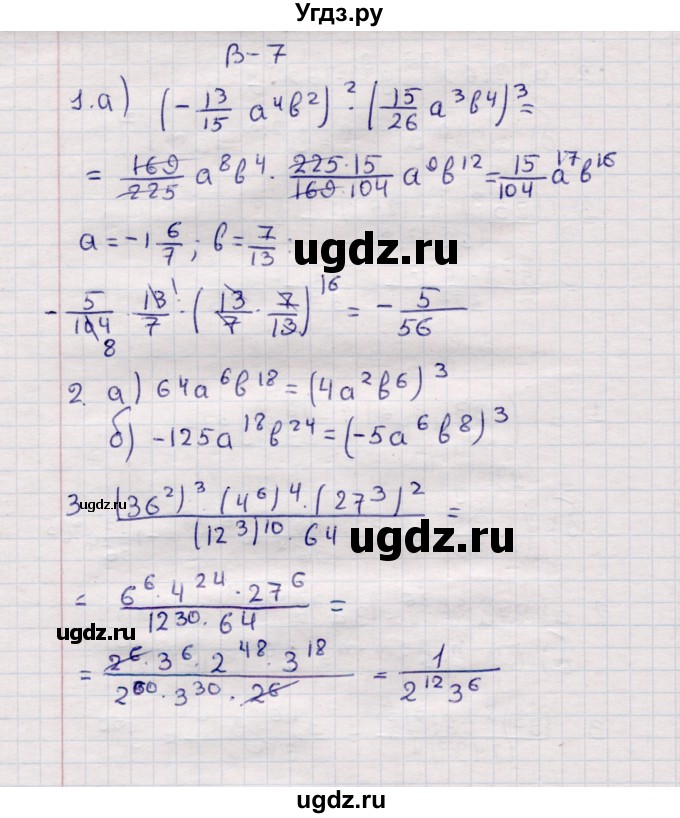 Угдз.ру
В-7
1.а) (-13/15 a⁴b²)² · (15/26 a³b⁴)³ =
= 169/225 a⁸b⁴ · 225·15/169·104 a⁹b¹² = 15/104 a¹⁷b¹⁶
a = -1 6/7 ; b = 7/13 :
ugdz.ru
- 5/104 8 · 13/7 ¹ · (13/7 · 7/13)¹⁶ = - 5/56
2. а) 64a⁶b¹⁸ = (4a²b⁶)³
б) -125a¹⁸b²⁴ = (-5a⁶b⁸)³
3 ugdz.ru (36²)³ · (4⁶)⁴ · (27³)² / (12³)¹⁰ · 64 =
ugdz.ru
= 6⁶ · 4²⁴ · 27⁶ / 12³⁰ · 64 =
ugdz.ru
= 2⁶ · 3⁶ · 2⁴⁸ · 3¹⁸ / 2⁶⁰ · 3³⁰ · 2⁶ = 1 / 2¹²3⁶
ugdz.ru